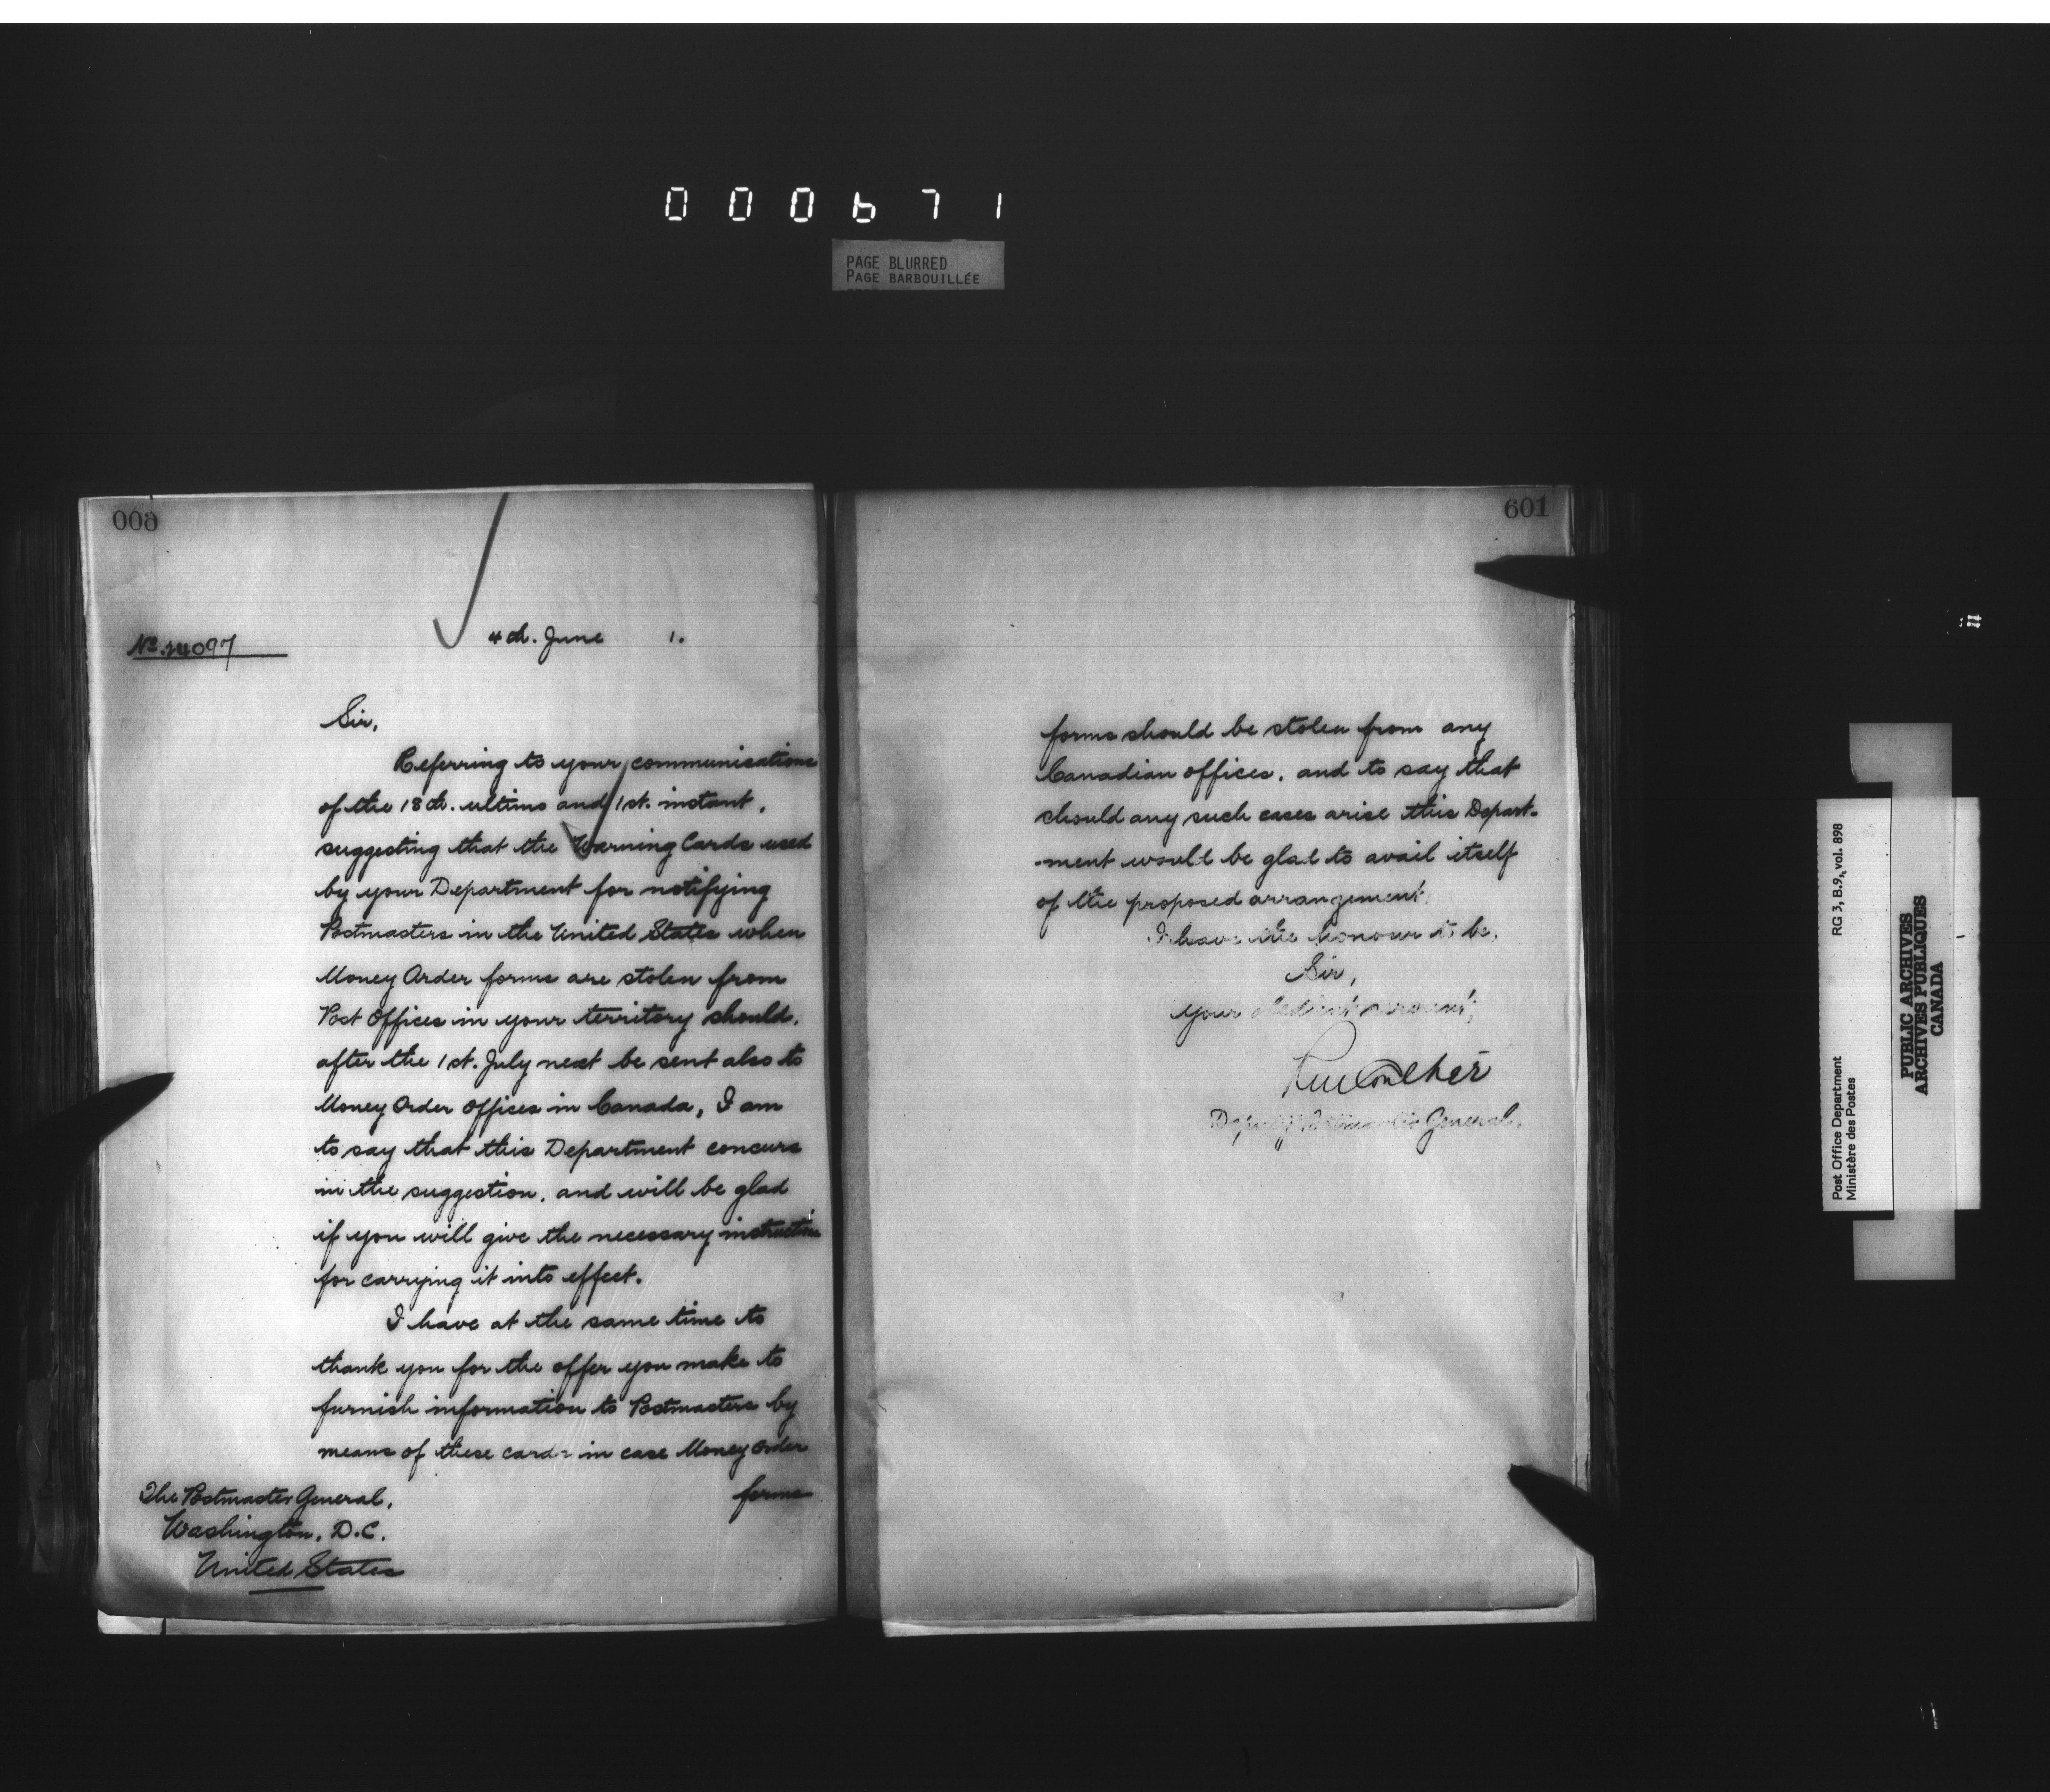 000671
PAGE BLURRED
PAGE BARBOUILLÉE
600
No. 24097
4th. June 1.
Sir,
Referring to your communications
of the 18th. ultimo and 1st. instant,
suggesting that the Warning Cards used
by your Department for notifying
Postmasters in the United States when
Money Order forms are stolen from
Post Offices in your territory should,
after the 1st. July next be sent also to
Money Order Offices in Canada, I am
to say that this Department concurs
in the suggestion, and will be glad
if you will give the necessary instructions
for carrying it into effect.
I have at the same time to
thank you for the offer you make to
furnish information to Postmasters by
means of these cards in case Money Order
forms
The Postmaster General,
Washington, D.C.
United States
601
forms should be stolen from any
Canadian offices, and to say that
should any such cases arise this Depart-
-ment would be glad to avail itself
of the proposed arrangement.
I have the honour to be,
Sir,
your obedient servant,
Deputy Postmaster General.
RG 3, B.9, vol. 898
Post Office Department
Ministère des Postes
PUBLIC ARCHIVES
ARCHIVES PUBLIQUES
CANADA